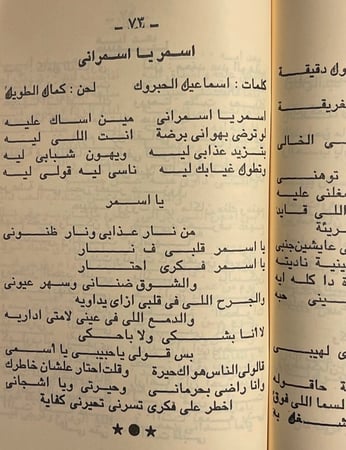 - ٧٣ -
اسمر يا اسمرانى
كلمات : اسماعيل الحبروك لحن : كمال الطويل
اسمر يا اسمرانى مين اساك عليه
لو ترضى بهوانى برضة انت اللى ليه
بتزيد عذابى ليه ويهون شبابى ليه
وتطول غيابك ليه ناسى ليه قولى ليه
يا اسمر
من نار عذابى ونار ظنونى
يا اسمر قلبى ف نار
يا اسمر فكرى احتار
والشوق ضنانى وسهر عيونى
والجرح اللى فى قلبى ازاى يداويه
والدمع اللى فى عينى لامتى اداريه
لا انا بشكى ولا باحكى
بس قولى يا حبيبى يا أسمر
قالولى الناس هواك حيرة وقلت احتار علشان خاطرك
وانا راضى بحرمانى وحيرتى ويا اشجانى
اخطر على فكرى تسرنى تحيرنى كفاية
ول دقيقة
خريقة
ى الخالى
توهنى
مغلنى عليه
اللى قايد
عايشين جنبى
ينية ناديته
دا كله ايه
عينى حبه
لهيبى
حاقوله
لسما اللى فوق
شغله به